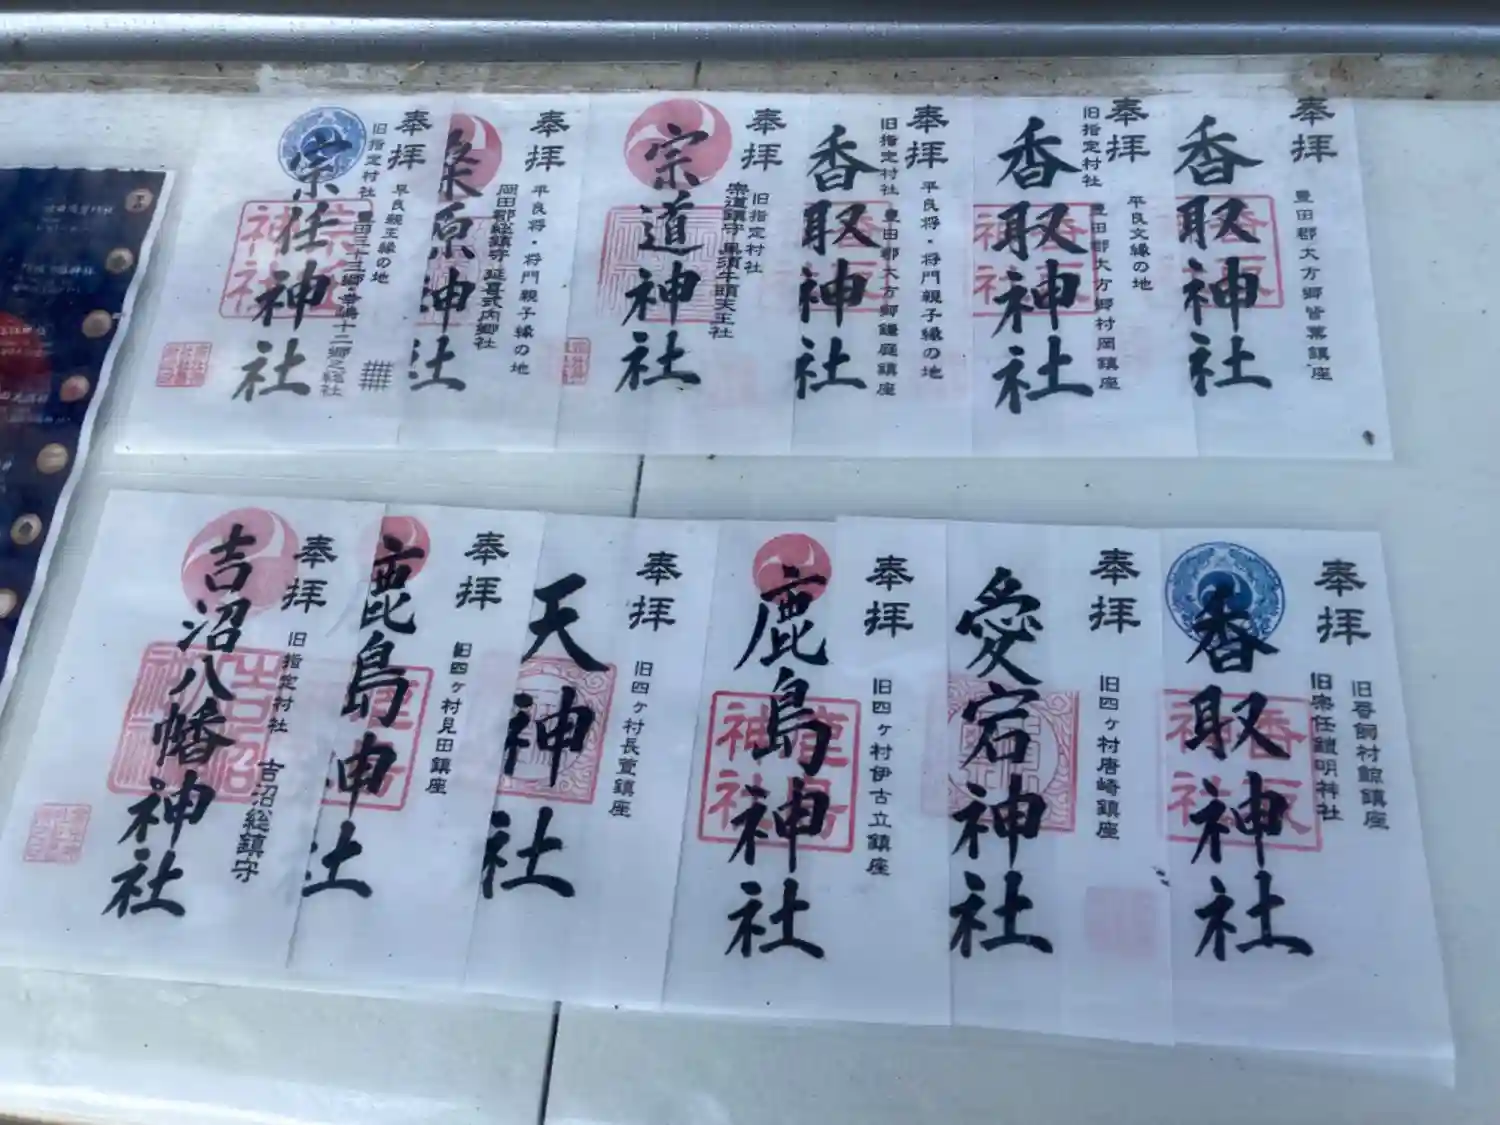 奉拝
豊田郡大方郷皆葉鎮座
香取神社
奉拝
平良文縁の地
旧指定村社
豊田郡大方郷村岡鎮座
香取神社
奉拝
平良将・将門親子縁の地
旧指定村社
豊田郡大方郷鎌庭鎮座
香取神社
奉拝
旧指定村社
宗道鎮守 黒須牛頭天王社
宗道神社
奉拝
平良将・将門親子縁の地
岡田郡総鎮守 延喜式内郷社
桑原神社
奉拝
平親王縁の地
旧指定村社
宗任神社
奉拝
旧香飼村鯨鎮座
旧宗任鎧明神社
香取神社
奉拝
旧四ヶ村唐崎鎮座
愛宕神社
奉拝
旧四ヶ村伊古立鎮座
鹿島神社
奉拝
旧四ヶ村長萱鎮座
天神社
奉拝
旧四ヶ村見田鎮座
鹿島神社
奉拝
旧指定村社
吉沼総鎮守
吉沼八幡神社